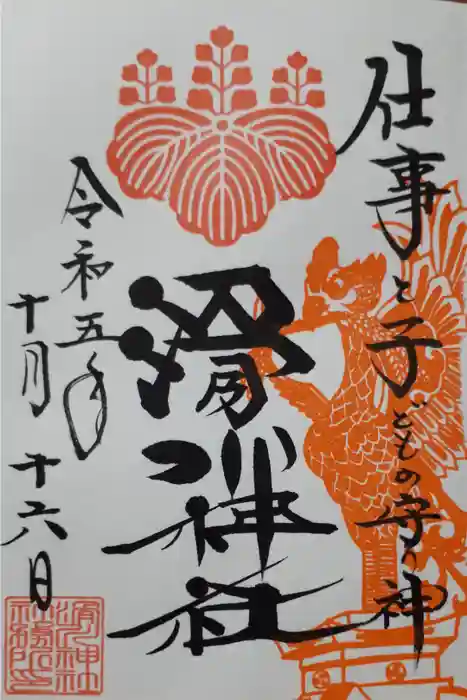 仕事と子どもの守り神
滑川神社
令和五年
十月十六日